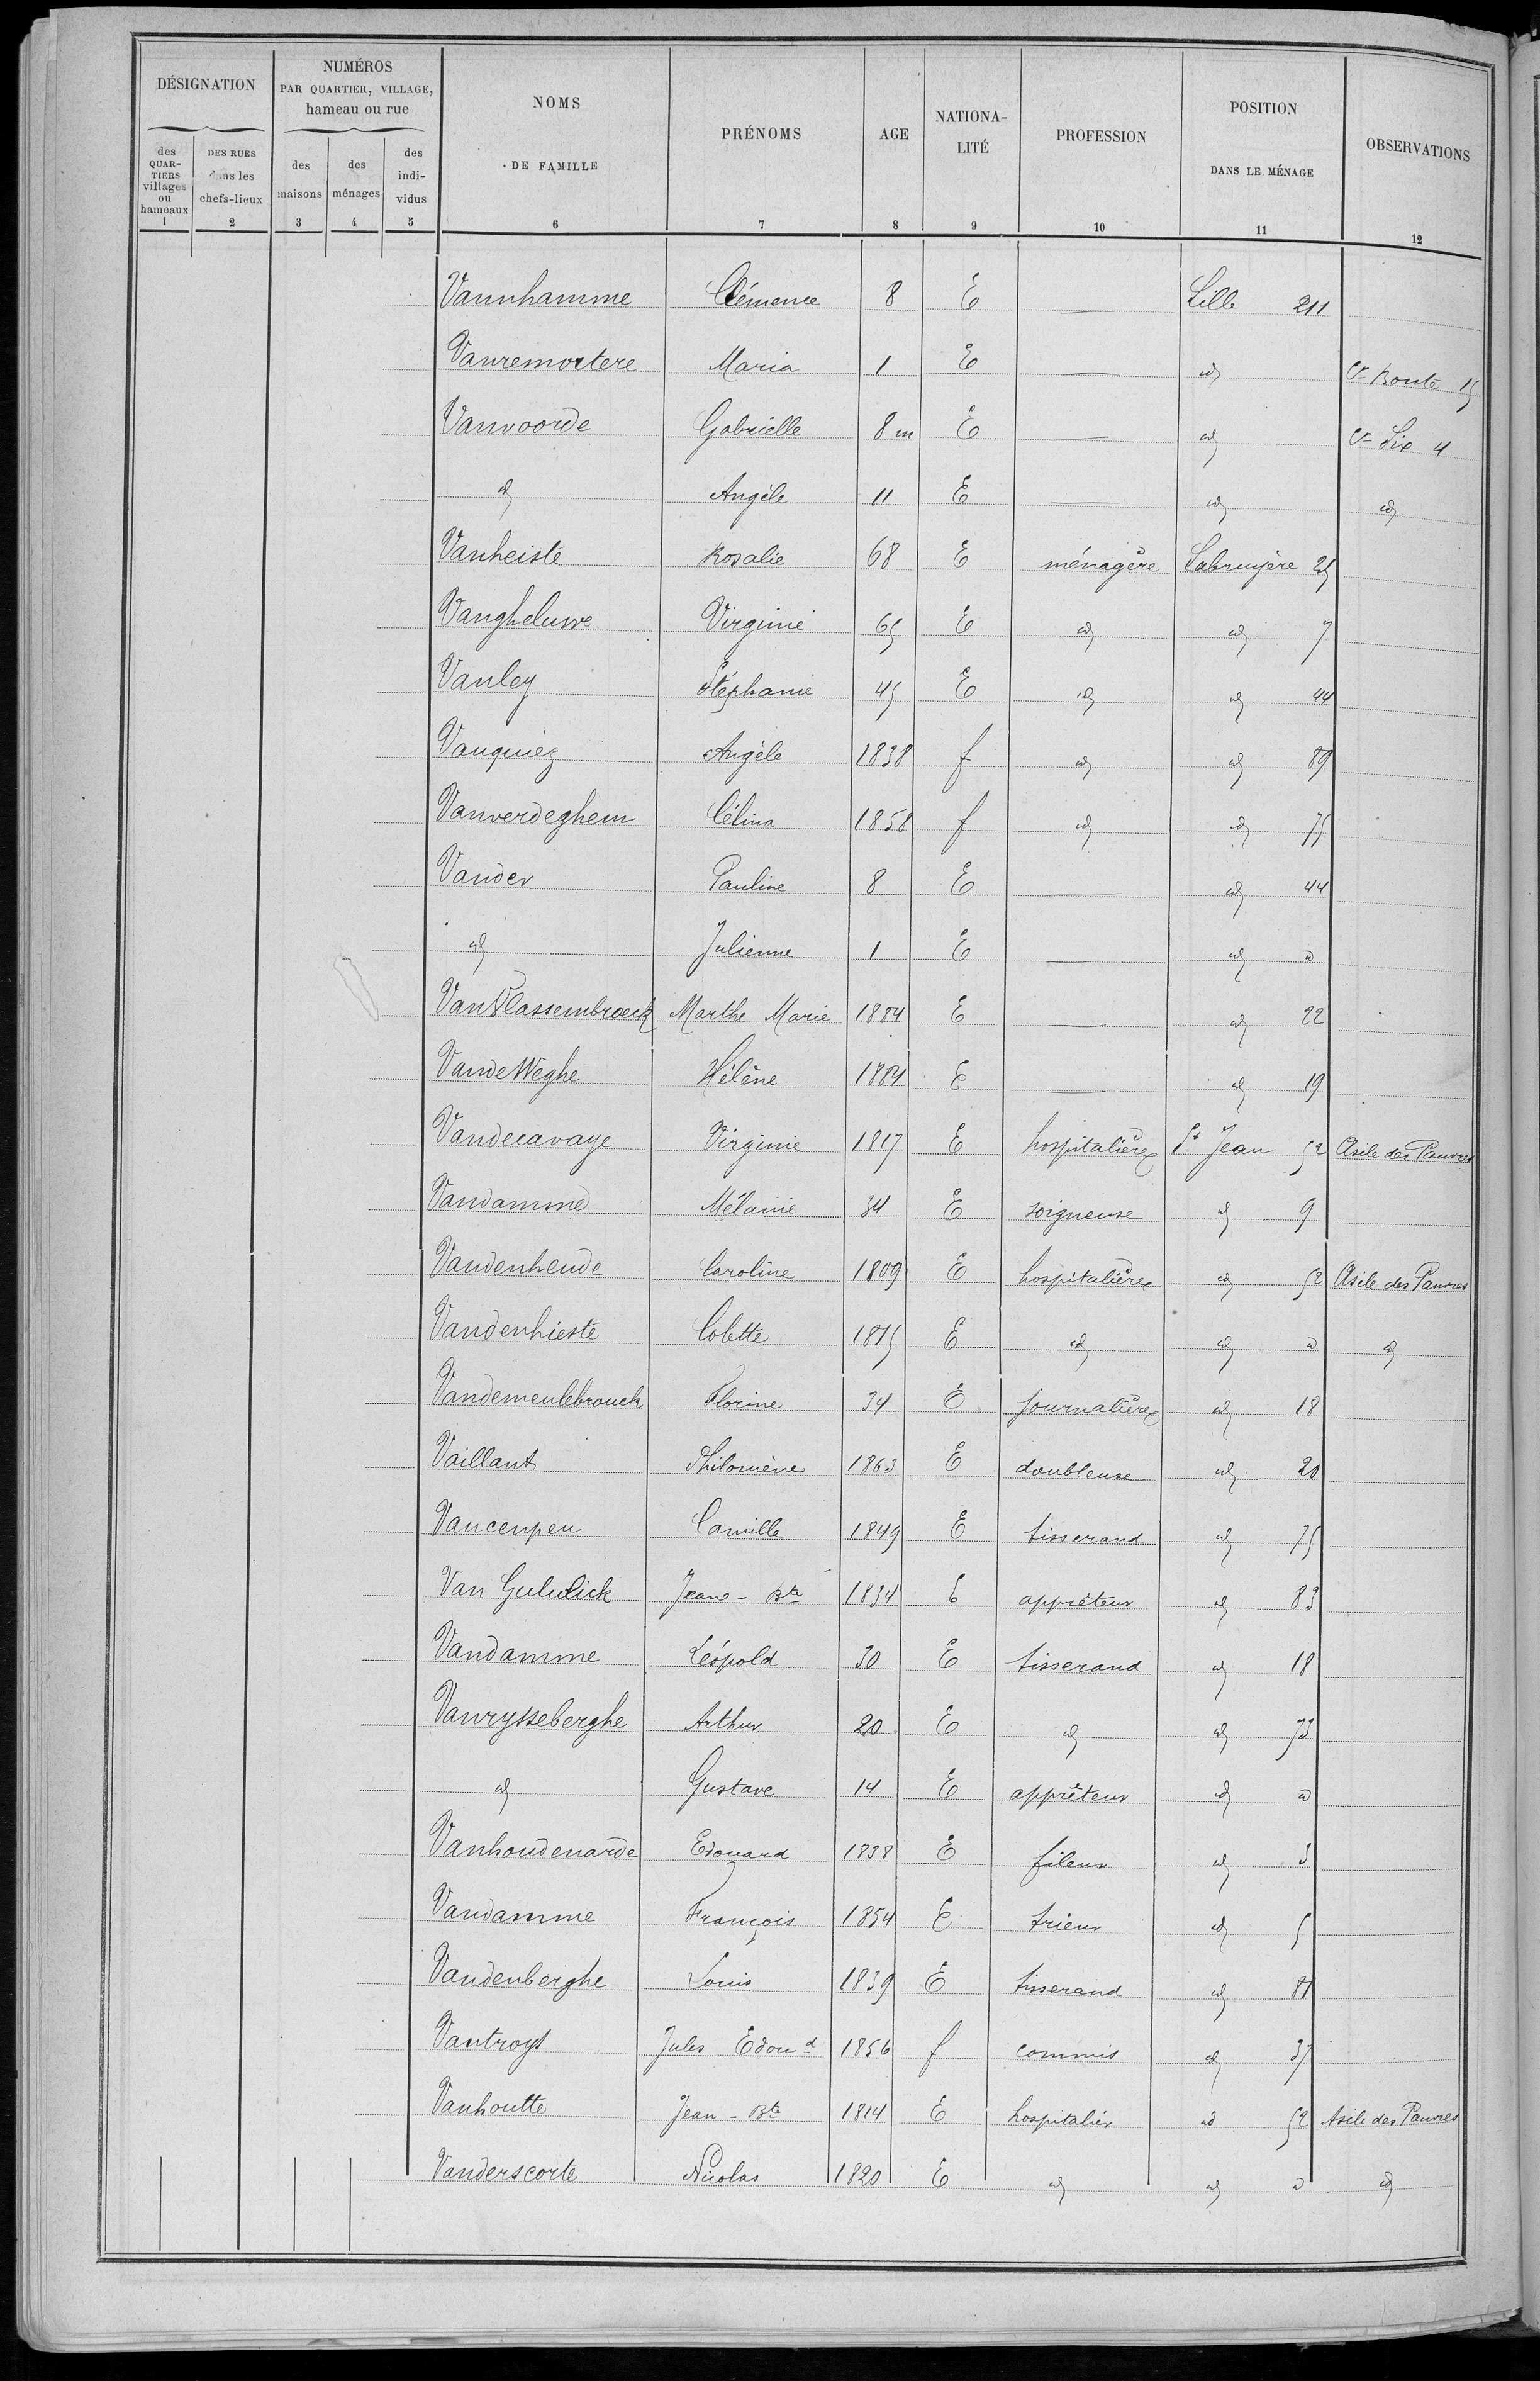 DÉSIGNATION
NUMÉROS PAR QUARTIER, VILLAGE, hameau ou rue
NOMS DE FAMILLE
PRÉNOMS
AGE
NATIONA-LITÉ
PROFESSION
POSITION DANS LE MÉNAGE
OBSERVATIONS
des QUAR-TIERS villages ou hameaux
DES RUES dans les chefs-lieux
des maisons
des ménages
des indi-vidus
1 2 3 4 5 6 7 8 9 10 11 12
Vannhamme Clémence 8 E — Lille 211
Vanremortere Maria 1 E — id Cr Bonte 15
Vanvoorde Gabrielle 8 m E — id Cr Six 4
id Angèle 11 E — id id
Vanheiste Rosalie 68 E ménagère Labruyère 25
Vangheluwe Virginie 65 E id id 7
Vanley Stéphanie 45 E id id 44
Vanquiez Angèle 1838 f id id 89
Vanverdeghem Célina 1858 f id id 75
Vander Pauline 8 E — id 44
id Julienne 1 E — id id
VanVlassembroeck Marthe Marie 1884 E — id 22
VandeWeghe Hélène 1884 E — id 19
Vandecavaye Virginie 1817 E hospitalière St Jean 52 Asile des Pauvres
Vandamme Mélanie 34 E soigneuse id 9
Vandenhende Caroline 1809 E hospitalière id 52 Asile des Pauvres
Vandenhieste Colette 1815 E id id id id
Vandemeulebrouck Florine 34 E journalière id 18
Vaillant Philomène 1863 E doubleuse id 20
Vancenpeu Camille 1849 E tisserand id 75
Van Gululick Jean-Bte 1834 E apprêteur id 83
Vandamme Léopold 30 E tisserand id 18
Vanrysseberghe Arthur 20 E id id 73
id Gustave 14 E apprêteur id id
Vanhoudenarde Edouard 1838 E fileur id 3
Vandamme François 1854 E trieur id 5
Vandenberghe Louis 1839 E tisserand id 81
Vantroys Jules Edoud 1856 f commis id 37
Vanhoutte Jean-Bte 1814 E hospitalier id 52 Asile des Pauvres
Vanderscorte Nicolas 1820 E id id id id